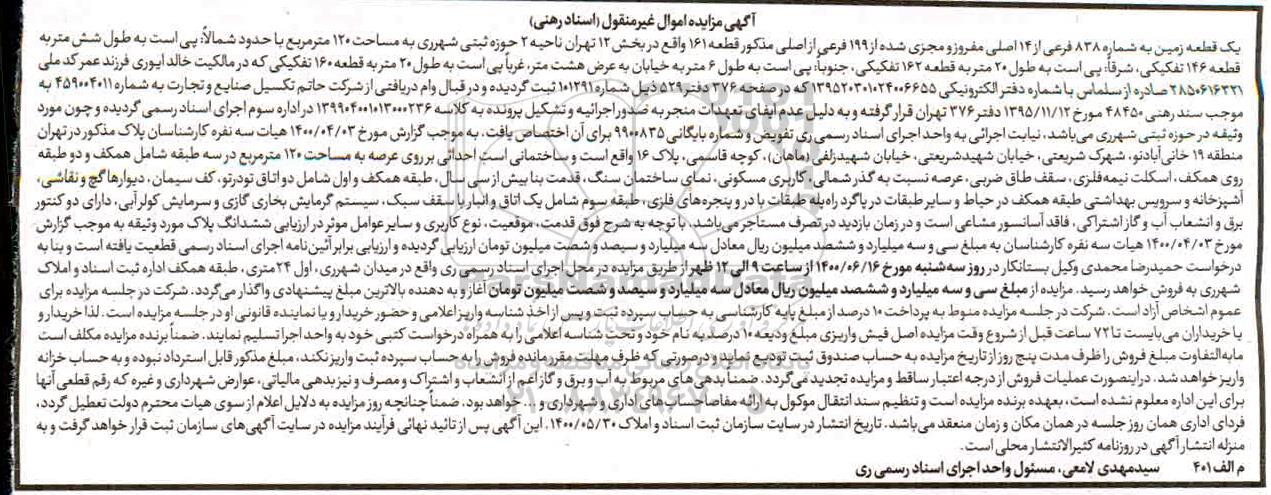 آگهی مزایده اموال غیرمنقول (اسناد رهنی)
یک قطعه زمین به شماره ۸۳۸ فرعی از ۱۴ اصلی مفروز و مجزی شده از ۱۹۹ فرعی از اصلی مذکور قطعه ۱۶۱ واقع در بخش ۱۲ تهران ناحیه ۲ حوزه ثبتی شهرری به مساحت ۱۲۰ مترمربع با حدود شمالاً: پی است به طول شش متر به
قطعه ۱۴۶ تفکیکی، شرقاً: پی است به طول ۲۰ متر به قطعه ۱۶۲ تفکیکی، جنوباً: پی است به طول ۶ متر به خیابان به عرض هشت متر، غرباً پی است به طول ۲۰ متر به قطعه ۱۶۰ تفکیکی که در مالکیت خالد ایوری فرزند عمر کد ملی
۲۸۵۰۶۱۶۳۲۱ صادره از سلماس با شماره دفتر الکترونیکی ۱۳۹۵۲۰۳۰۱۰۲۴۰۰۶۶۵۵ که در صفحه ۳۷۶ دفتر ۵۲۹ ذیل شماره ۱۰۱۲۹۱ ثبت گردیده و در قبال وام دریافتی از شرکت حاتم تکسیل صنایع و تجارت به شماره ۴۵۹۰۰۴۰۱۱ به
موجب سند رهنی ۴۸۴۵۰ مورخ ۱۳۹۵/۱۱/۱۲ دفتر ۳۷۶ تهران قرار گرفته و به دلیل عدم ایفای تعهدات منجر به صدور اجرائیه و تشکیل پرونده به کلاسه ۱۳۹۹۰۴۰۰۱۰۱۳۰۰۰۲۳۶ در اداره سوم اجرای اسناد رسمی گردیده و چون مورد
وثیقه در حوزه ثبتی شهرری می‌باشد، نیابت اجرائی به واحد اجرای اسناد رسمی ری تفویض و شماره بایگانی ۹۹۰۰۸۳۵ برای آن اختصاص یافت. به موجب گزارش مورخ ۱۴۰۰/۰۴/۰۳ هیات سه نفره کارشناسان پلاک مذکور در تهران
منطقه ۱۹ خانی‌آبادنو، شهرک شریعتی، خیابان شهیدشریعتی، خیابان شهیدزلفی (ماهان)، کوچه قاسمی، پلاک ۱۶ واقع است و ساختمانی است احداثی بر روی عرصه به مساحت ۱۲۰ مترمربع در سه طبقه شامل همکف و دو طبقه
روی همکف، اسکلت نیمه‌فلزی، سقف طاق ضربی، عرصه نسبت به گذر شمالی، کاربری مسکونی، نمای ساختمان سنگ، قدمت بنا بیش از سی سال، طبقه همکف و اول شامل دو اتاق تودرتو، کف سیمان، دیوارها گچ و نقاشی،
آشپزخانه و سرویس بهداشتی طبقه همکف در حیاط و سایر طبقات در پاگرد راه‌پله طبقات با در و پنجره‌های فلزی، طبقه سوم شامل یک اتاق و انبار با سقف سبک، سیستم گرمایش بخاری گازی و سرمایش کولر آبی، دارای دو کنتور
برق و انشعاب آب و گاز اشتراکی، فاقد آسانسور مشاعی است و در زمان بازدید در تصرف مستاجر می‌باشد. با توجه به شرح فوق قدمت، موقعیت، نوع کاربری و سایر عوامل موثر در ارزیابی ششدانگ پلاک مورد وثیقه به موجب گزارش
مورخ ۱۴۰۰/۰۴/۰۳ هیات سه نفره کارشناسان به مبلغ سی و سه میلیارد و ششصد میلیون ریال معادل سه میلیارد و سیصد و شصت میلیون تومان ارزیابی گردیده و ارزیابی برابر آئین‌نامه اجرای اسناد رسمی قطعیت یافته است و بنا به
درخواست حمیدرضا محمدی وکیل بستانکار در روز سه‌شنبه مورخ ۱۴۰۰/۰۶/۱۶ از ساعت ۹ الی ۱۲ ظهر از طریق مزایده در محل اجرای اسناد رسمی ری واقع در میدان شهرری، اول ۲۴متری، طبقه همکف اداره ثبت اسناد و املاک
شهرری به فروش خواهد رسید. مزایده از مبلغ سی و سه میلیارد و ششصد میلیون ریال معادل سه میلیارد و سیصد و شصت میلیون تومان آغاز و به دهنده بالاترین مبلغ پیشنهادی واگذار می‌گردد. شرکت در جلسه مزایده برای
عموم اشخاص آزاد است. شرکت در جلسه مزایده منوط به پرداخت ۱۰ درصد از مبلغ پایه کارشناسی به حساب سپرده ثبت و پس از اخذ شناسه واریز اعلامی و حضور خریدار و یا نماینده قانونی او در جلسه مزایده است. لذا خریدار و
یا خریداران می‌بایست تا ۷۲ ساعت قبل از شروع وقت مزایده اصل فیش واریزی مبلغ ودیعه ۱۰ درصد به نام خود و تحت شناسه اعلامی را به همراه درخواست کتبی خود به واحد اجرا تسلیم نمایند. ضمناً برنده مزایده مکلف است
مابه‌التفاوت مبلغ فروش را ظرف مدت پنج روز از تاریخ مزایده به حساب صندوق ثبت تودیع نماید و درصورتی که ظرف مهلت مقرر مانده فروش را به حساب سپرده ثبت واریز نکند، مبلغ مذکور قابل استرداد نبوده و به حساب خزانه
واریز خواهد شد. دراینصورت عملیات فروش از درجه اعتبار ساقط و مزایده تجدید می‌گردد. ضمناً بدهی‌های مربوط به آب و برق و گاز اعم از انشعاب و اشتراک و مصرف و نیز بدهی مالیاتی، عوارض شهرداری و غیره که رقم قطعی آنها
برای این اداره معلوم نشده است، بعهده برنده مزایده است و تنظیم سند انتقال موکول به ارائه مفاصاحساب‌های اداری و شهرداری و ... خواهد بود. ضمناً چنانچه روز مزایده به دلایل اعلام از سوی هیات محترم دولت تعطیل گردد،
فردای اداری همان روز جلسه در همان مکان و زمان منعقد می‌باشد. تاریخ انتشار در سایت سازمان ثبت اسناد و املاک ۱۴۰۰/۰۵/۳۰. این آگهی پس از تائید نهائی فرآیند مزایده در سایت آگهی‌های سازمان ثبت قرار خواهد گرفت و به
منزله انتشار آگهی در روزنامه کثیرالانتشار محلی است.
م الف ۴۰۱ سیدمهدی لامعی، مسئول واحد اجرای اسناد رسمی ری